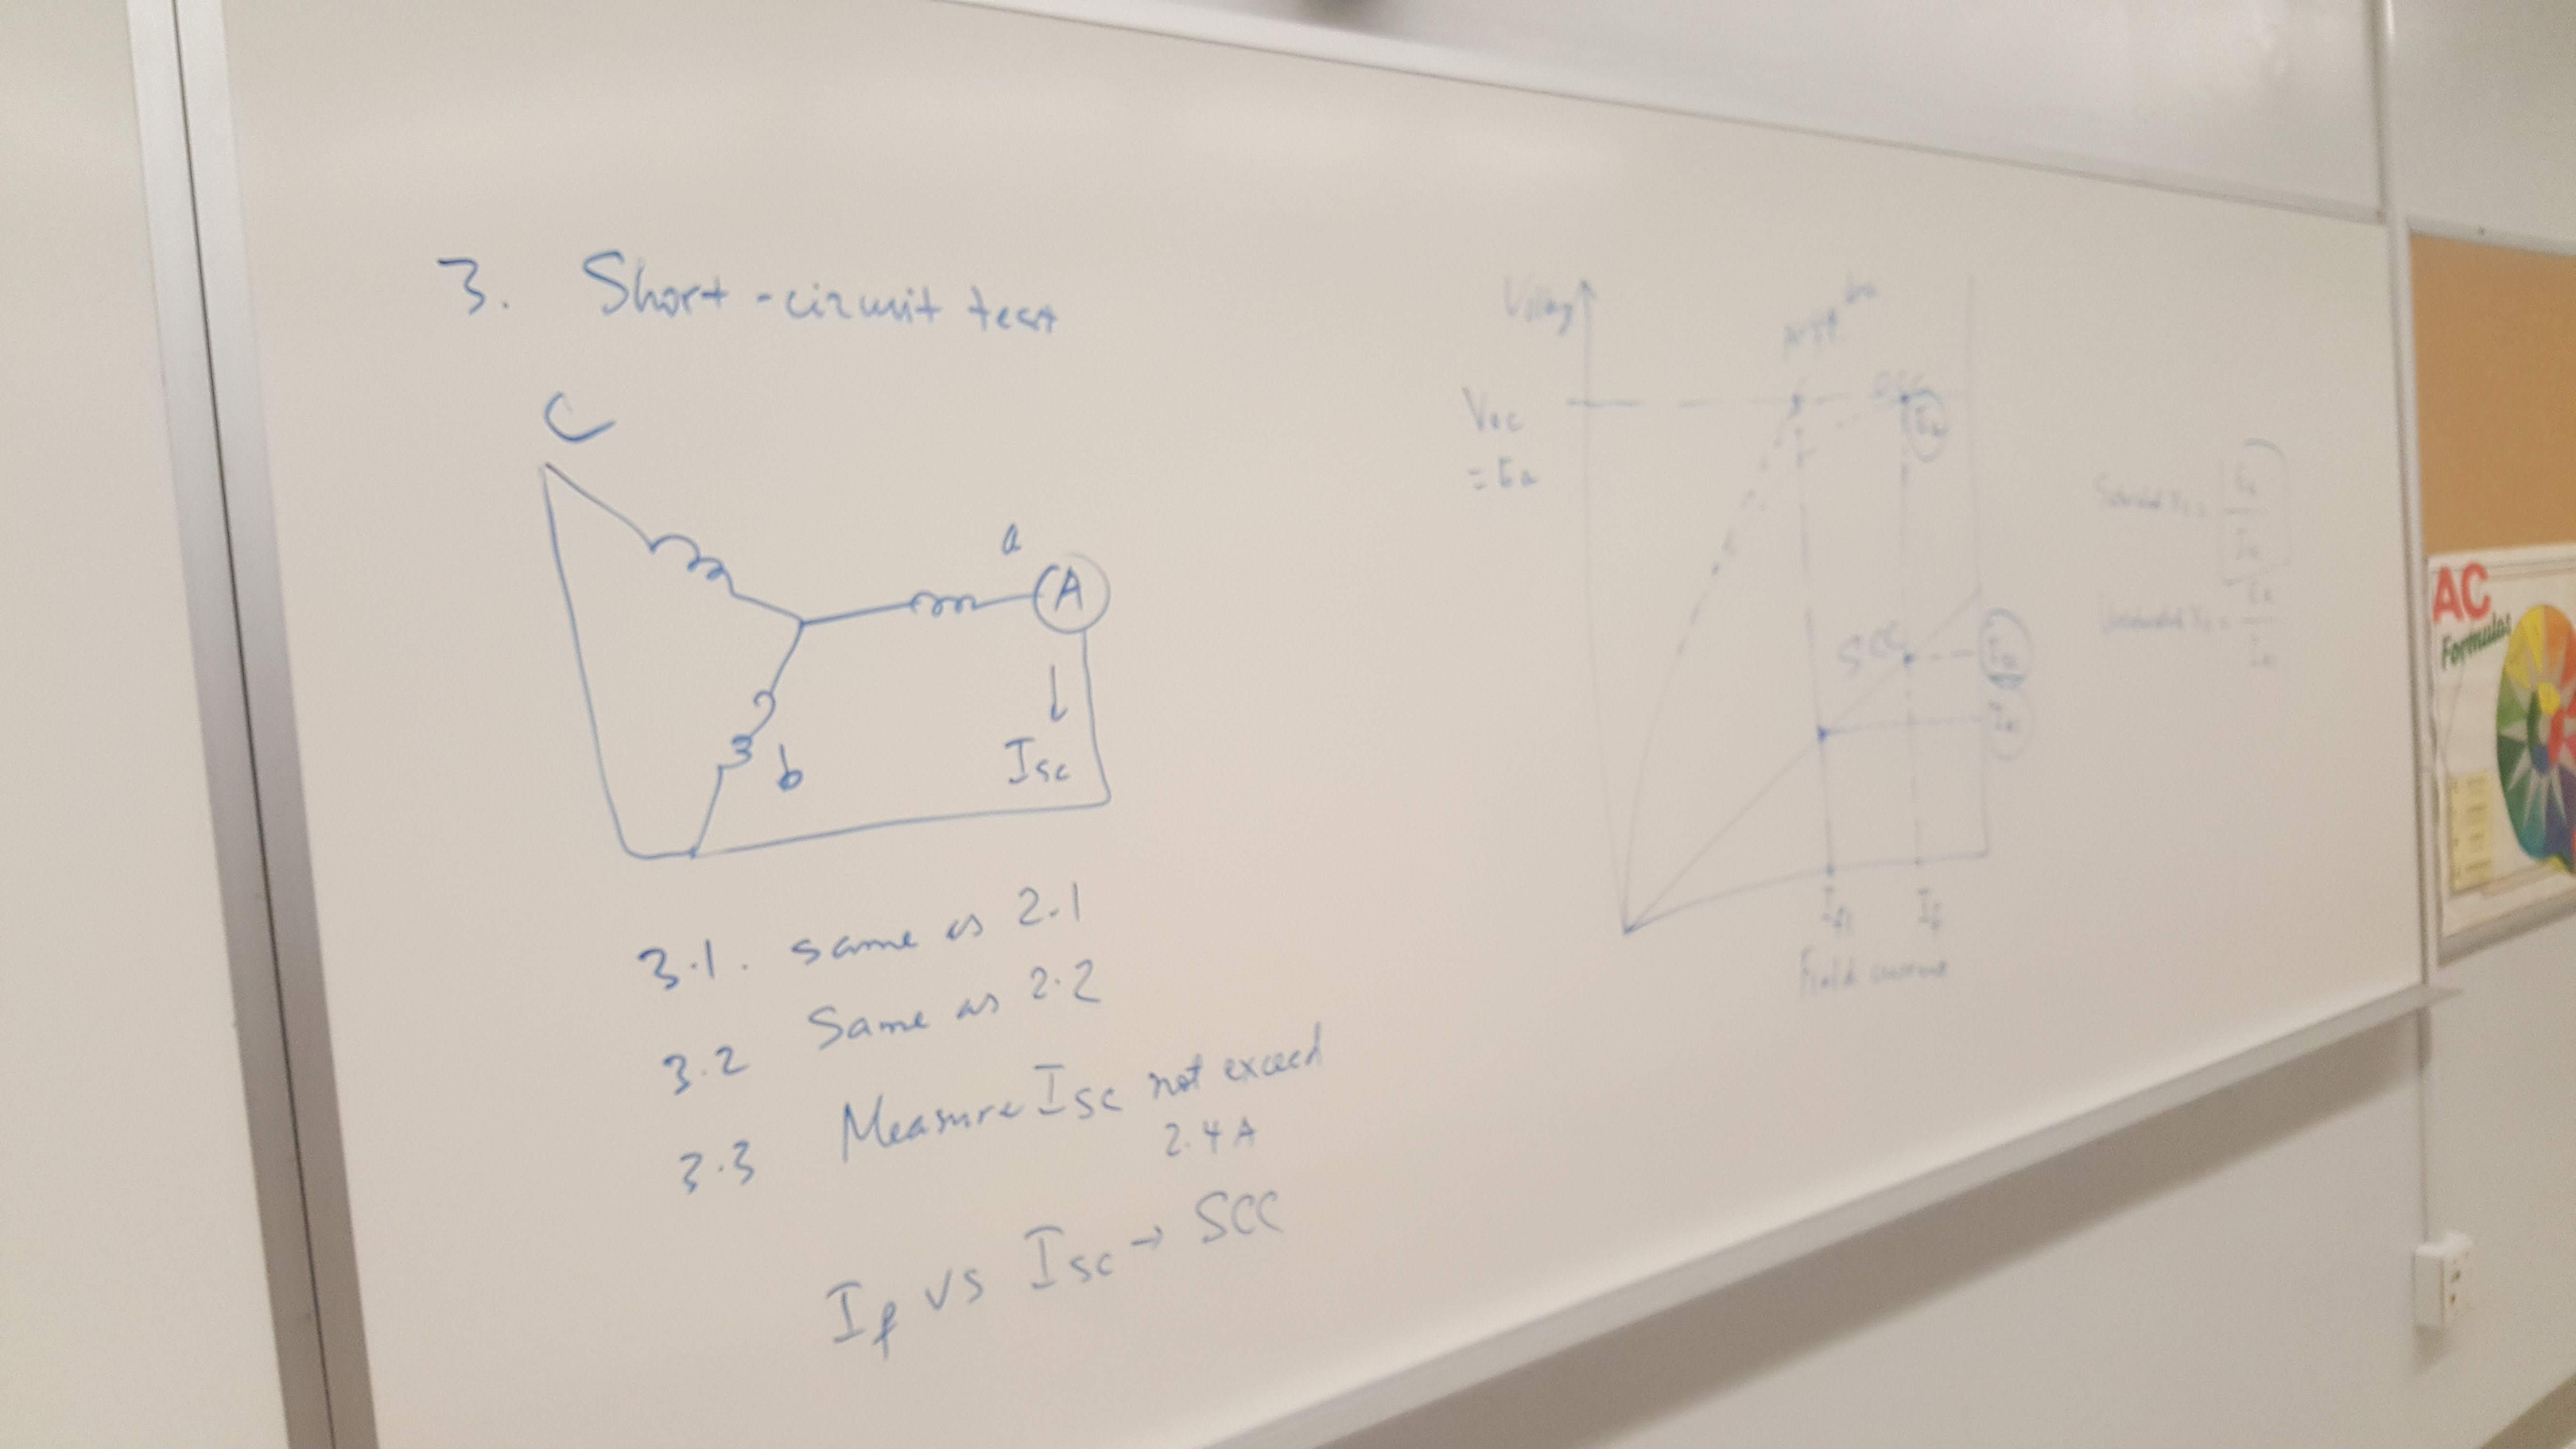 3. Short-circuit test
C
a
A
b
Isc
3.1. same as 2.1
3.2 Same as 2.2
3.3 Measure Isc not exceed
2.4 A
If vs Isc → SCC
Voltage
Voc
= Ea
OCC
Ea
SCC
Ia
Ia
If1 If
Field current
Saturated Xs = Ea
Ia
Unsaturated Xs = Ea
Ia
AC
Formulas